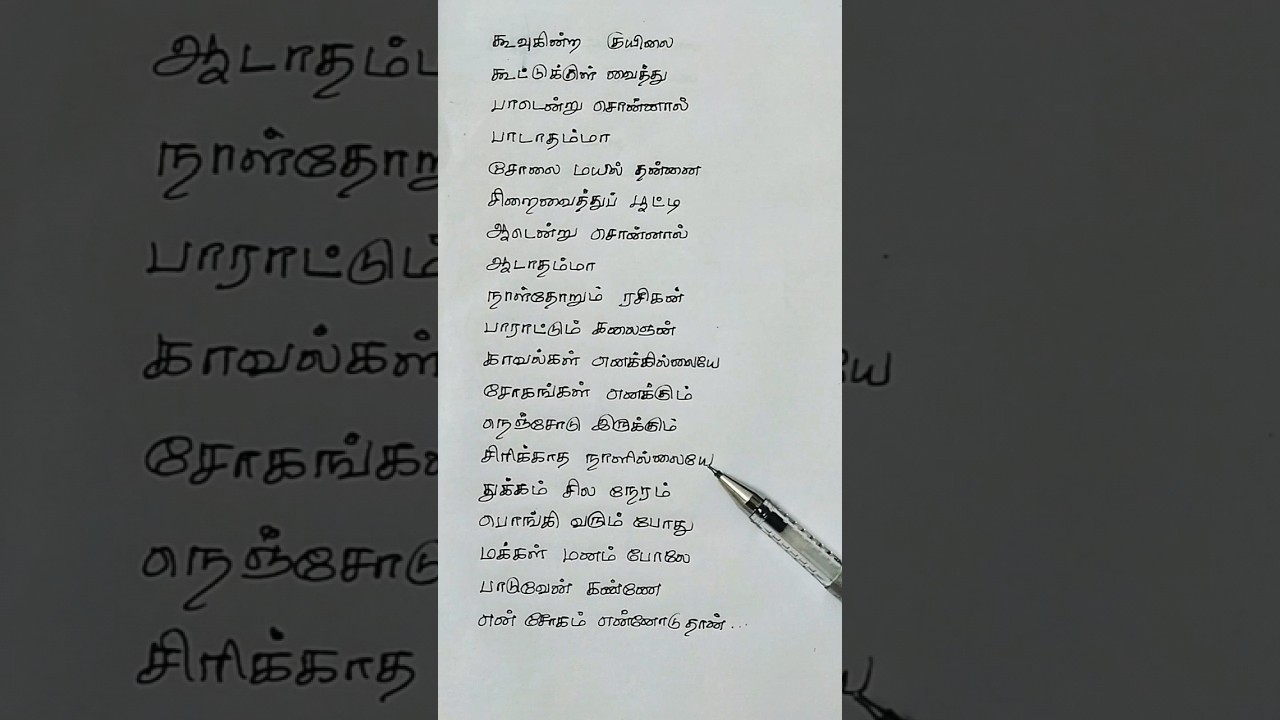 கூவுகின்ற குயிலை
கூட்டுக்குள் வைத்து
பாடென்று சொன்னால்
பாடாதம்மா
சோலை மயில் தன்னை
சிறைவைத்துப் பூட்டி
ஆடென்று சொன்னால்
ஆடாதம்மா
நாள்தோறும் ரசிகன்
பாராட்டும் கலைஞன்
காவல்கள் எனக்கில்லையே
சோகங்கள் எனக்கும்
நெஞ்சோடு இருக்கும்
சிரிக்காத நாளில்லையே
துக்கம் சில நேரம்
பொங்கி வரும் போது
மக்கள் மனம் போலே
பாடுவேன் கண்ணே
என் சோகம் என்னோடு தான்...